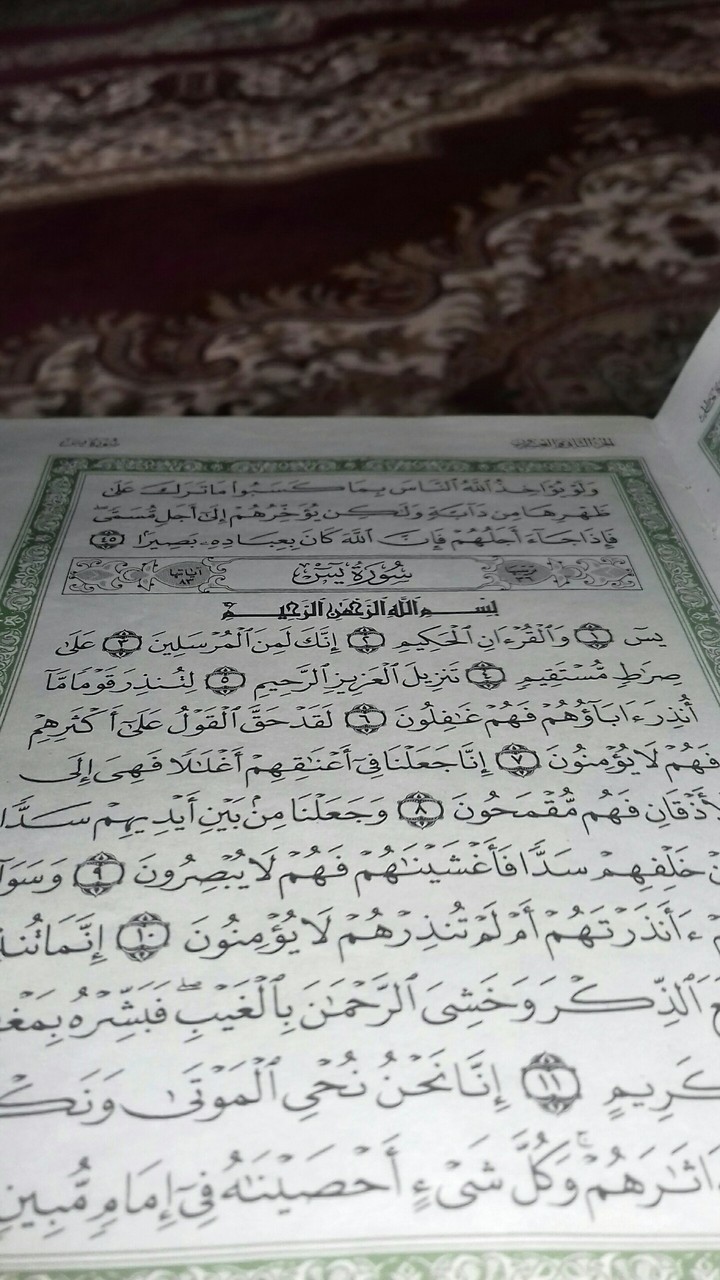 وَلَوْ يُؤَاخِذُ ٱللَّهُ ٱلنَّاسَ بِمَا كَسَبُوا۟ مَا تَرَكَ عَلَىٰ
ظَهْرِهَا مِن دَآبَّةٍ وَلَٰكِن يُؤَخِّرُهُمْ إِلَىٰٓ أَجَلٍ مُّسَمًّى ۖ
فَإِذَا جَآءَ أَجَلُهُمْ فَإِنَّ ٱللَّهَ كَانَ بِعِبَادِهِۦ بَصِيرًۢا ٤٥
ترتيبها ٣٦ سُورَةُ يسٓ آياتها ٨٣
بِسْمِ ٱللَّهِ ٱلرَّحْمَٰنِ ٱلرَّحِيمِ
يسٓ ١ وَٱلْقُرْءَانِ ٱلْحَكِيمِ ٢ إِنَّكَ لَمِنَ ٱلْمُرْسَلِينَ ٣ عَلَىٰ
صِرَٰطٍ مُّسْتَقِيمٍ ٤ تَنزِيلَ ٱلْعَزِيزِ ٱلرَّحِيمِ ٥ لِتُنذِرَ قَوْمًا مَّآ
أُنذِرَ ءَابَآؤُهُمْ فَهُمْ غَٰفِلُونَ ٦ لَقَدْ حَقَّ ٱلْقَوْلُ عَلَىٰٓ أَكْثَرِهِمْ
فَهُمْ لَا يُؤْمِنُونَ ٧ إِنَّا جَعَلْنَا فِىٓ أَعْنَٰقِهِمْ أَغْلَٰلًا فَهِىَ إِلَى
لْأَذْقَانِ فَهُم مُّقْمَحُونَ ٨ وَجَعَلْنَا مِنۢ بَيْنِ أَيْدِيهِمْ سَدًّا
نْ خَلْفِهِمْ سَدًّا فَأَغْشَيْنَٰهُمْ فَهُمْ لَا يُبْصِرُونَ ٩ وَسَوَآ
مْ ءَأَنذَرْتَهُمْ أَمْ لَمْ تُنذِرْهُمْ لَا يُؤْمِنُونَ ١٠ إِنَّمَا تُنذِ
عَ ٱلذِّكْرَ وَخَشِىَ ٱلرَّحْمَٰنَ بِٱلْغَيْبِ ۖ فَبَشِّرْهُ بِمَغْ
كَرِيمٍ ١١ إِنَّا نَحْنُ نُحْىِ ٱلْمَوْتَىٰ وَنَكْ
ءَاثَٰرَهُمْ ۚ وَكُلَّ شَىْءٍ أَحْصَيْنَٰهُ فِىٓ إِمَامٍ مُّبِينٍ